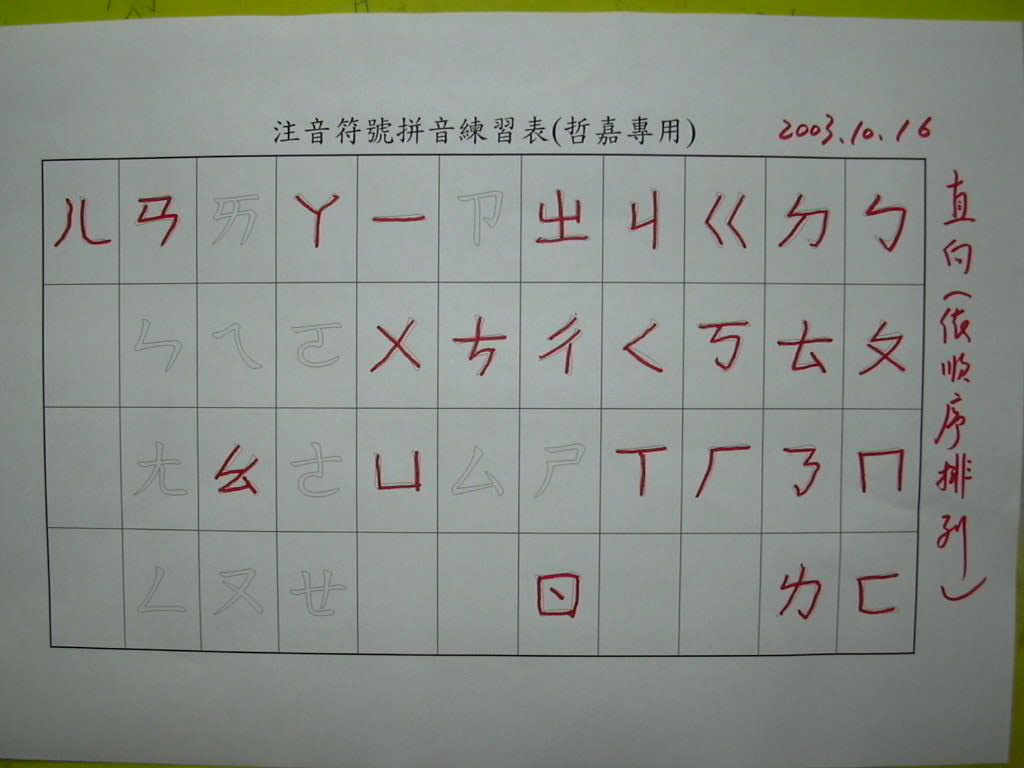 注音符號拼音練習表(哲嘉專用) 2003.10.16
ㄦ ㄢ ㄞ ㄚ 一 ㄗ ㄓ ㄐ ㄍ ㄉ ㄅ
ㄣ ㄟ ㄛ ㄨ ㄘ ㄔ ㄑ ㄎ ㄊ ㄆ
ㄤ ㄠ ㄜ ㄩ ㄙ ㄕ ㄒ ㄏ ㄋ ㄇ
ㄥ ㄡ ㄝ ㄖ ㄌ ㄈ
直向(依順序排列)